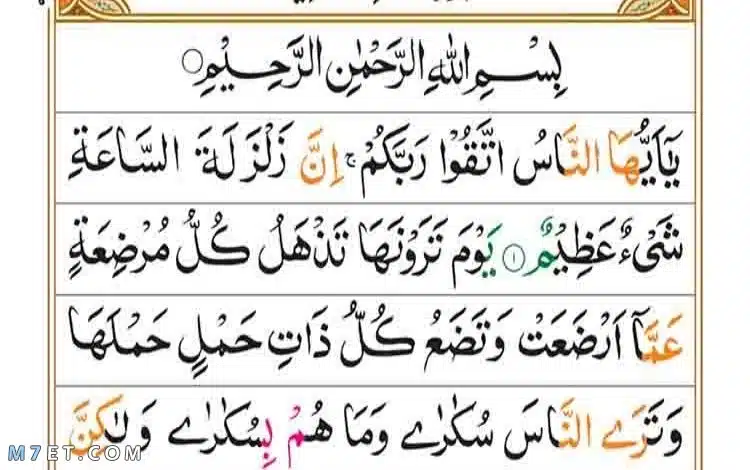 بِسْمِ اللّٰهِ الرَّحْمٰنِ الرَّحِيْمِ ○
يٰٓاَيُّهَا النَّاسُ اتَّقُوْا رَبَّكُمْ ۚ اِنَّ زَلْزَلَةَ السَّاعَةِ
شَیْءٌ عَظِيْمٌ ۝۱ يَوْمَ تَرَوْنَهَا تَذْهَلُ كُلُّ مُرْضِعَةٍ
عَمَّاۤ اَرْضَعَتْ وَتَضَعُ كُلُّ ذَاتِ حَمْلٍ حَمْلَهَا
وَتَرَے النَّاسَ سُكٰرٰے وَمَا هُمْ بِسُكٰرٰے وَلٰكِنَّ
M7ET.COM